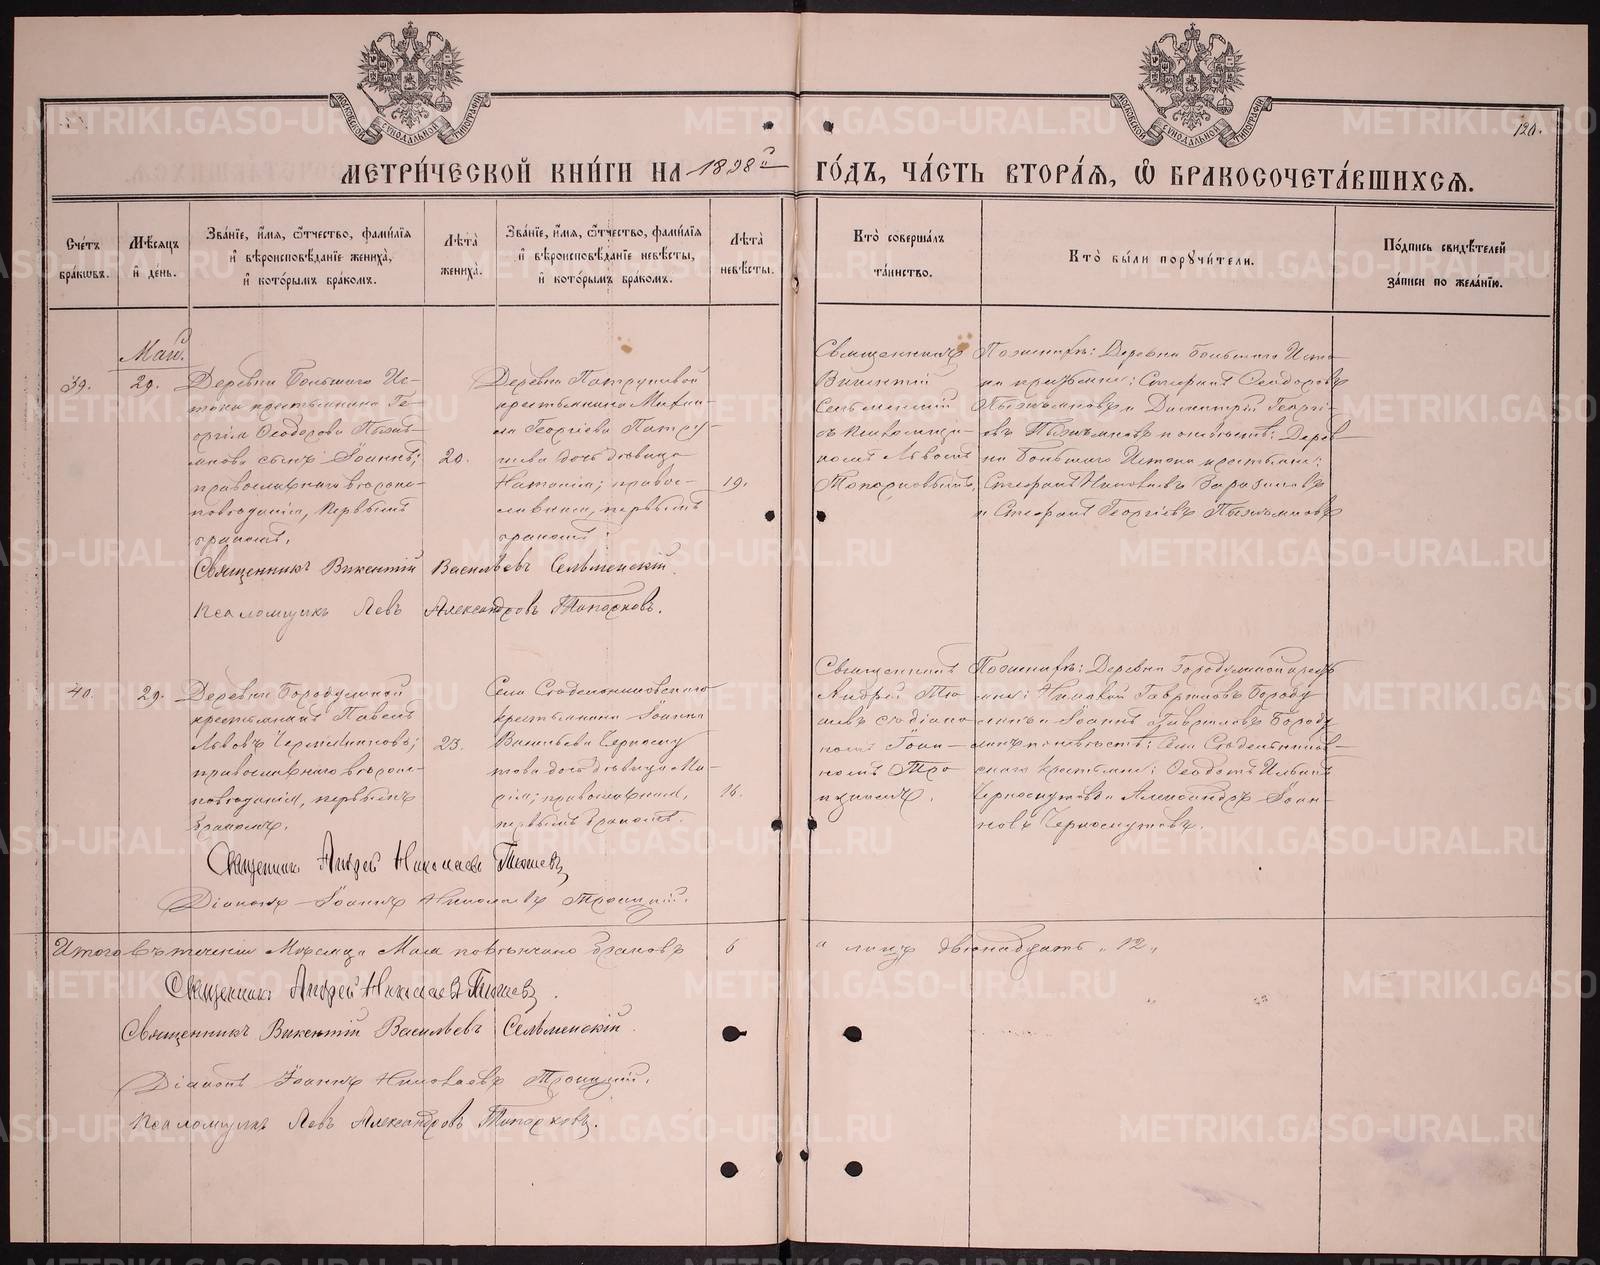 МОСКОВСКОЙ СѴНОДАЛЬНОЙ ТИПОГРАФІИ
МОСКОВСКОЙ СѴНОДАЛЬНОЙ ТИПОГРАФІИ
120.
МЕТРИ́ЧЕСКОЙ КНИ́ГИ НА 1898й ГО́ДЪ, ЧА́СТЬ ВТОРА́Я, Ѡ҆ БРАКОСОЧЕТА́ВШИХСЯ.
Сче́тъ бра́кѡвъ.
Мѣ́сяцъ и҆ де́нь.
Зва́нїе, и҆́мя, ѻ҆́тчество, фами́лїя и҆ вѣроисповѣ́данїе жениха̀, и҆ кото́рымъ бра́комъ.
Лѣ́та жениха̀.
Зва́нїе, и҆́мя, ѻ҆́тчество, фами́лїя и҆ вѣроисповѣ́данїе невѣ́сты, и҆ кото́рымъ бра́комъ.
Лѣ́та невѣ́сты.
Кто̀ соверша́лъ та́инство.
Кто̀ бы́ли пору́чители.
По́дпись свидѣ́телей за́писи по жела́нїю.
Май.
39.
29.
Деревни Большаго Ис-
тока крестьянина Ге-
оргія Ѳеодорова
сынъ Іоаннъ;
православнаго вѣроис-
повѣданія, первымъ
бракомъ.
20.
Деревни
крестьянина Миха-
ила Георгіева
дочь дѣвица
Наталія; правос-
лавная, первымъ
бракомъ.
19.
Священникъ
Викентій
Сельменскій
съ псаломщи-
комъ Львомъ
Топорковымъ.
По женихѣ: Деревни Большаго Исто-
ка крестьяне: Стефанъ Ѳеодоровъ
и Димитрій Георгі-
евъ по невѣстѣ: Дерев-
ни Большаго Истока крестьяне:
Стефанъ Николаевъ
и Стефанъ Георгіевъ
Священникъ Викентій Васильевъ Сельменскій.
Псаломщикъ Левъ Александровъ Топорковъ.
40.
29.
Деревни Бородулиной
крестьянинъ Павелъ
Львовъ
православнаго вѣроис-
повѣданія, первымъ
бракомъ.
23.
Села
крестьянина Іоанна
Васильева Черноску-
това дочь дѣвица Ма-
рія; православная,
первымъ бракомъ.
16.
Священникъ
Андрей
съ діако-
номъ Іоан-
номъ Тро-
ицкимъ.
По женихѣ: Деревни Бородулиной кресть-
яне: Николай Гавриловъ Бороду-
линъ и Іоаннъ Гавриловъ Бороду-
линъ по невѣстѣ: Села
крестьяне: Ѳеодотъ Ильинъ
Черноскутовъ и Александръ Іоан-
новъ Черноскутовъ.
Священникъ Андрей Николаевъ
Діаконъ Іоаннъ Николаевъ Троицкій.
Итого въ теченіи Мѣсяца Мая повѣнчано браковъ 6 а лицъ двѣнадцать „12„
Священникъ Андрей Николаевъ
Священникъ Викентій Васильевъ Сельменскій.
Діаконъ Іоаннъ Николаевъ Троицкій.
Псаломщикъ Левъ Александровъ Топорковъ.
METRIKI.GASO-URAL.RU